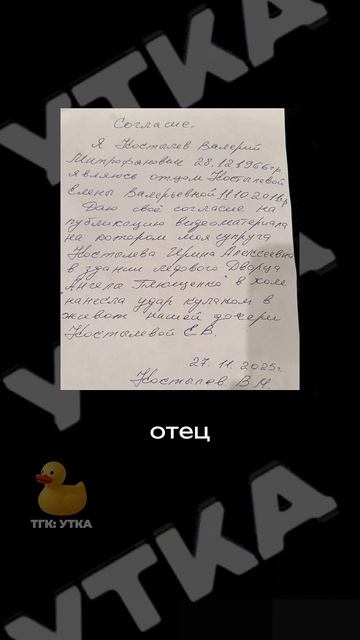 УТКА
Согласие.
Я Костылев Валерий
Митрофанович 28.12.1966гр.
являюсь отцом Костылевой
Елены Валерьевной 11.10.2016гр
Даю своё согласие на
публикацию видеоматериала
на котором моя супруга
Костылева Ирина Алексеевна
в здании ледового Дворца
"Ангела Плющенко" в холе
нанесла удар кулаком в
живот нашей дочери
Костылевой Е.В.
27. 11. 2025г.
Костылев В.М.
отец
ТГК: УТКА
УТКА
УТКА